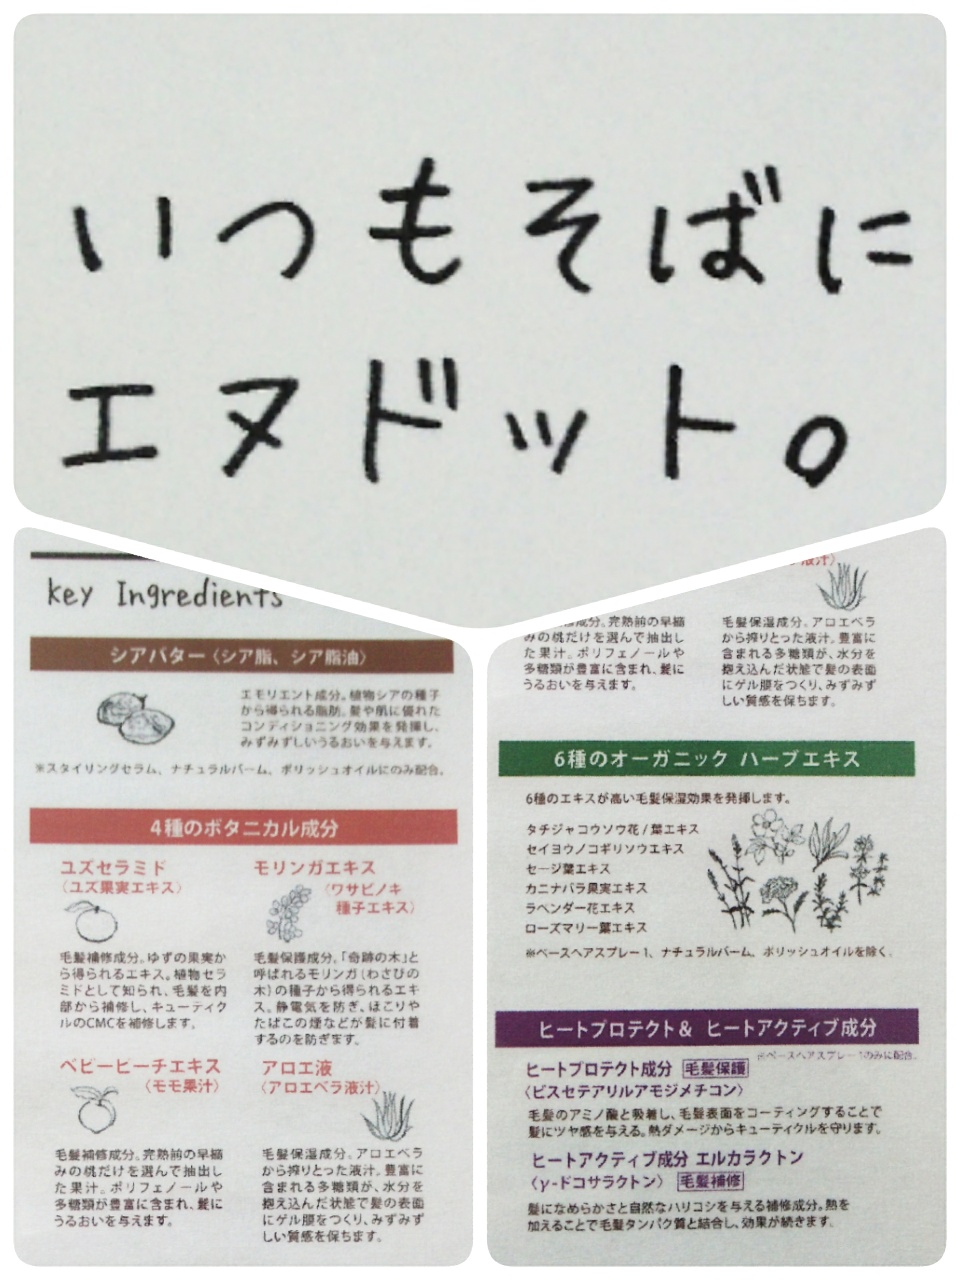 いつもそばに
エヌドット。
key Ingredients
シアバター〈シア脂、シア脂油〉
エモリエント成分。植物シアの種子
から得られる脂肪。髪や肌に優れた
コンディショニング効果を発揮し、
みずみずしいうるおいを与えます。
※スタイリングセラム、ナチュラルバーム、ポリッシュオイルにのみ配合。
4種のボタニカル成分
ユズセラミド
〈ユズ果実エキス〉
毛髪補修成分。ゆずの果実か
ら得られるエキス。植物セラ
ミドとして知られ、毛髪を内
部から補修し、キューティク
ルのCMCを補修します。
モリンガエキス
〈ワサビノキ
種子エキス〉
毛髪保護成分。「奇跡の木」と
呼ばれるモリンガ(わさびの
木)の種子から得られるエキ
ス。静電気を防ぎ、ほこりや
たばこの煙などが髪に付着
するのを防ぎます。
ベビーピーチエキス
〈モモ果汁〉
毛髪補修成分。完熟前の早摘
みの桃だけを選んで抽出し
た果汁。ポリフェノールや
多糖類が豊富に含まれ、髪に
うるおいを与えます。
アロエ液
〈アロエベラ液汁〉
毛髪保湿成分。アロエベラ
から搾りとった液汁。豊富に
含まれる多糖類が、水分を
抱え込んだ状態で髪の表面
にゲル膜をつくり、みずみず
しい質感を保ちます。
液汁〉
成分。完熟前の早摘
みの桃だけを選んで抽出し
た果汁。ポリフェノールや
多糖類が豊富に含まれ、髪に
うるおいを与えます。
毛髪保湿成分。アロエベラ
から搾りとった液汁。豊富に
含まれる多糖類が、水分を
抱え込んだ状態で髪の表面
にゲル膜をつくり、みずみず
しい質感を保ちます。
6種のオーガニック ハーブエキス
6種のエキスが高い毛髪保湿効果を発揮します。
タチジャコウソウ花/葉エキス
セイヨウノコギリソウエキス
セージ葉エキス
カニナバラ果実エキス
ラベンダー花エキス
ローズマリー葉エキス
※ベースヘアスプレー1、ナチュラルバーム、ポリッシュオイルを除く。
ヒートプロテクト& ヒートアクティブ成分
※ベースヘアスプレー1のみに配合。
ヒートプロテクト成分 毛髪保護
〈ビスセテアリルアモジメチコン〉
毛髪のアミノ酸と吸着し、毛髪表面をコーティングすることで
髪にツヤ感を与える。熱ダメージからキューティクルを守ります。
ヒートアクティブ成分 エルカラクトン
〈γ-ドコサラクトン〉 毛髪補修
髪になめらかさと自然なハリコシを与える補修成分。熱を
加えることで毛髪タンパク質と結合し、効果が続きます。